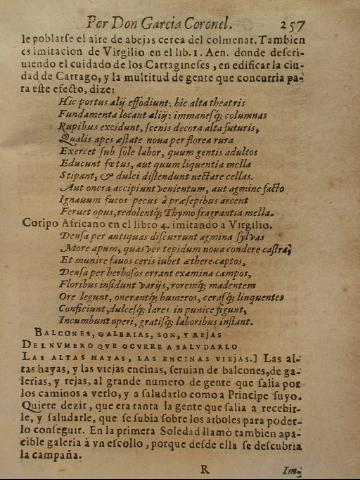 Por Don Garcia Coronel. 257
le poblarse el aire de abejas cerca del colmenar. Tambien
es imitacion de Virgilio en el lib. 1. Aen. donde descri-
uiendo el cuidado de los Cartagineses, en edificar la ciu-
dad de Cartago, y la multitud de gente que concurria pa-
ra este efecto, dize:
Hic portus alij effodiunt: hic alta theatris
Fundamenta locant alij: immanesq; columnas
Rupibus excidunt, scenis decora alta futuris,
Qualis apes æstate noua per florea rura
Exercet sub sole labor, quum gentis adultos
Educunt fœtus, aut quum liquentia mella
Stipant, & dulci distendunt nectare cellas.
Aut onera accipiunt venientum, aut agmine facto
Ignauum fucos pecus à præsepibus arcent
Feruet opus, redolentq; Thymo fragrantia mella.
Coripo Africano en el libro 4. imitando a Virgilio.
Densa per antiquas discurrunt agmina syluas
More apum, quas ver tepidum noua condere castra,
Et munire fauos ceris iubet æthere captos,
Densa per herbosos errant examina campos,
Floribus insidunt varijs, roremq; madentem
Ore legunt, onerantq; humeros, cerasq; linquentes
Conficiunt, dulcesq; lares in punice figunt,
Incumbunt operi, gratisq; laboribus instant.
BALCONES, GALERIAS, SON, Y REJAS
DE NVMERO QVE OCVRRE A SALVDARLO
LAS ALTAS HAYAS, LAS ENCINAS VIEJAS.] Las al-
tas hayas, y las viejas encinas, seruian de balcones, de ga-
lerias, y rejas, al grande numero de gente que salia por
los caminos a verlo, y a saludarlo como a Principe suyo.
Quiere dezir, que era tanta la gente que salia a recebir-
le, y saludarle, que se subia sobre los arboles para poder-
lo conseguir. En la primera Soledad llamò tambien apa-
cible galeria à vn escollo, porque desde ella se descubria
la campaña.
R